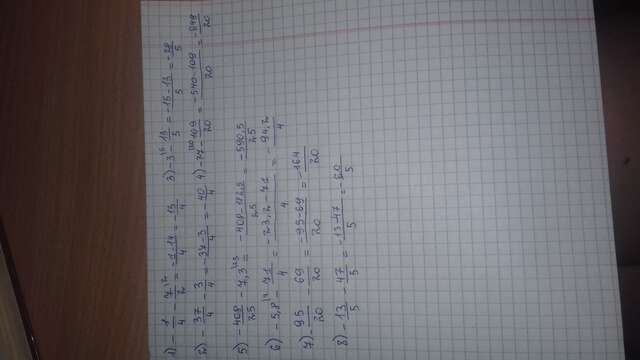 1) - 1/4 - 7/2 \2 = -1-14/4 = -15/4 3) -3 \5 - 13/5 = -15-13/5 = -28/5
2) - 37/4 - 3/4 = -37-3/4 = -40/4 4) -27 \20 - 109/20 = -540-109/20 = -649/20
5) -408/25 - 7,3 \25 = -408-182,5/25 = -590,5/25
6) -5,8 \4 - 71/4 = -23,2-71/4 = -94,2/4
7) - 95/20 - 69/20 = -95-69/20 = -164/20
8) - 13/5 - 47/5 = -13-47/5 = -60/5